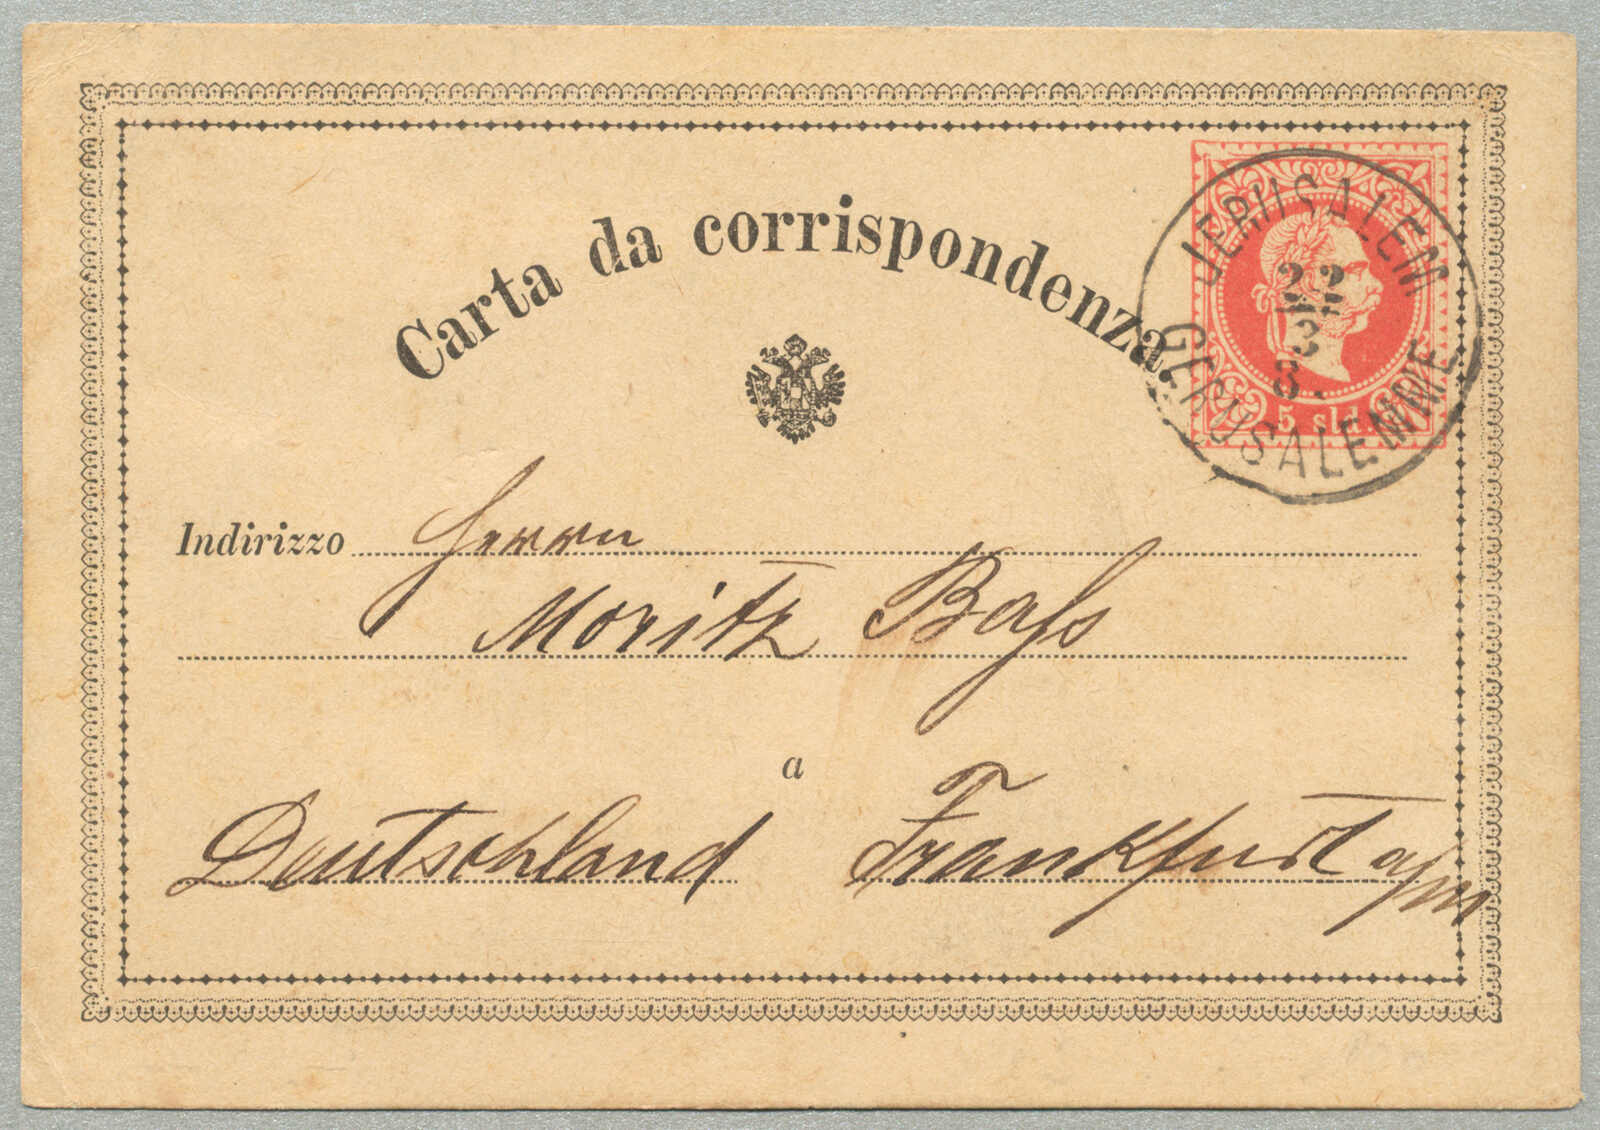 Carta da corrispondenza.
5 sld.
JERUSALEM
22
3
GERUSALEMME
Indirizzo Herrn
Moritz Bass
a
Deutschland Frankfurt a/m